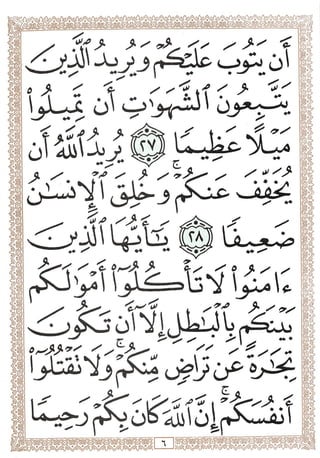 أَن يَتُوبَ عَلَيْكُمْ وَيُرِيدُ ٱلَّذِينَ
يَتَّبِعُونَ ٱلشَّهَوَٰتِ أَن تَمِيلُوا۟
مَيْلًا عَظِيمًا ٢٧ يُرِيدُ ٱللَّهُ أَن
يُخَفِّفَ عَنكُمْ ۚ وَخُلِقَ ٱلْإِنسَٰنُ
ضَعِيفًا ٢٨ يَٰٓأَيُّهَا ٱلَّذِينَ
ءَامَنُوا۟ لَا تَأْكُلُوٓا۟ أَمْوَٰلَكُم
بَيْنَكُم بِٱلْبَٰطِلِ إِلَّآ أَن تَكُونَ
تِجَٰرَةً عَن تَرَاضٍ مِّنكُمْ ۚ وَلَا تَقْتُلُوٓا۟
أَنفُسَكُمْ ۚ إِنَّ ٱللَّهَ كَانَ بِكُمْ رَحِيمًا
٦